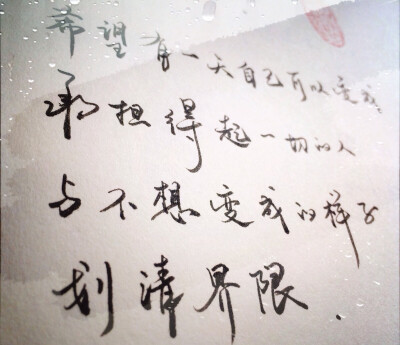 希望有一天自己可以变成
承担得起一切的人
与不想变成的样子
划清界限.